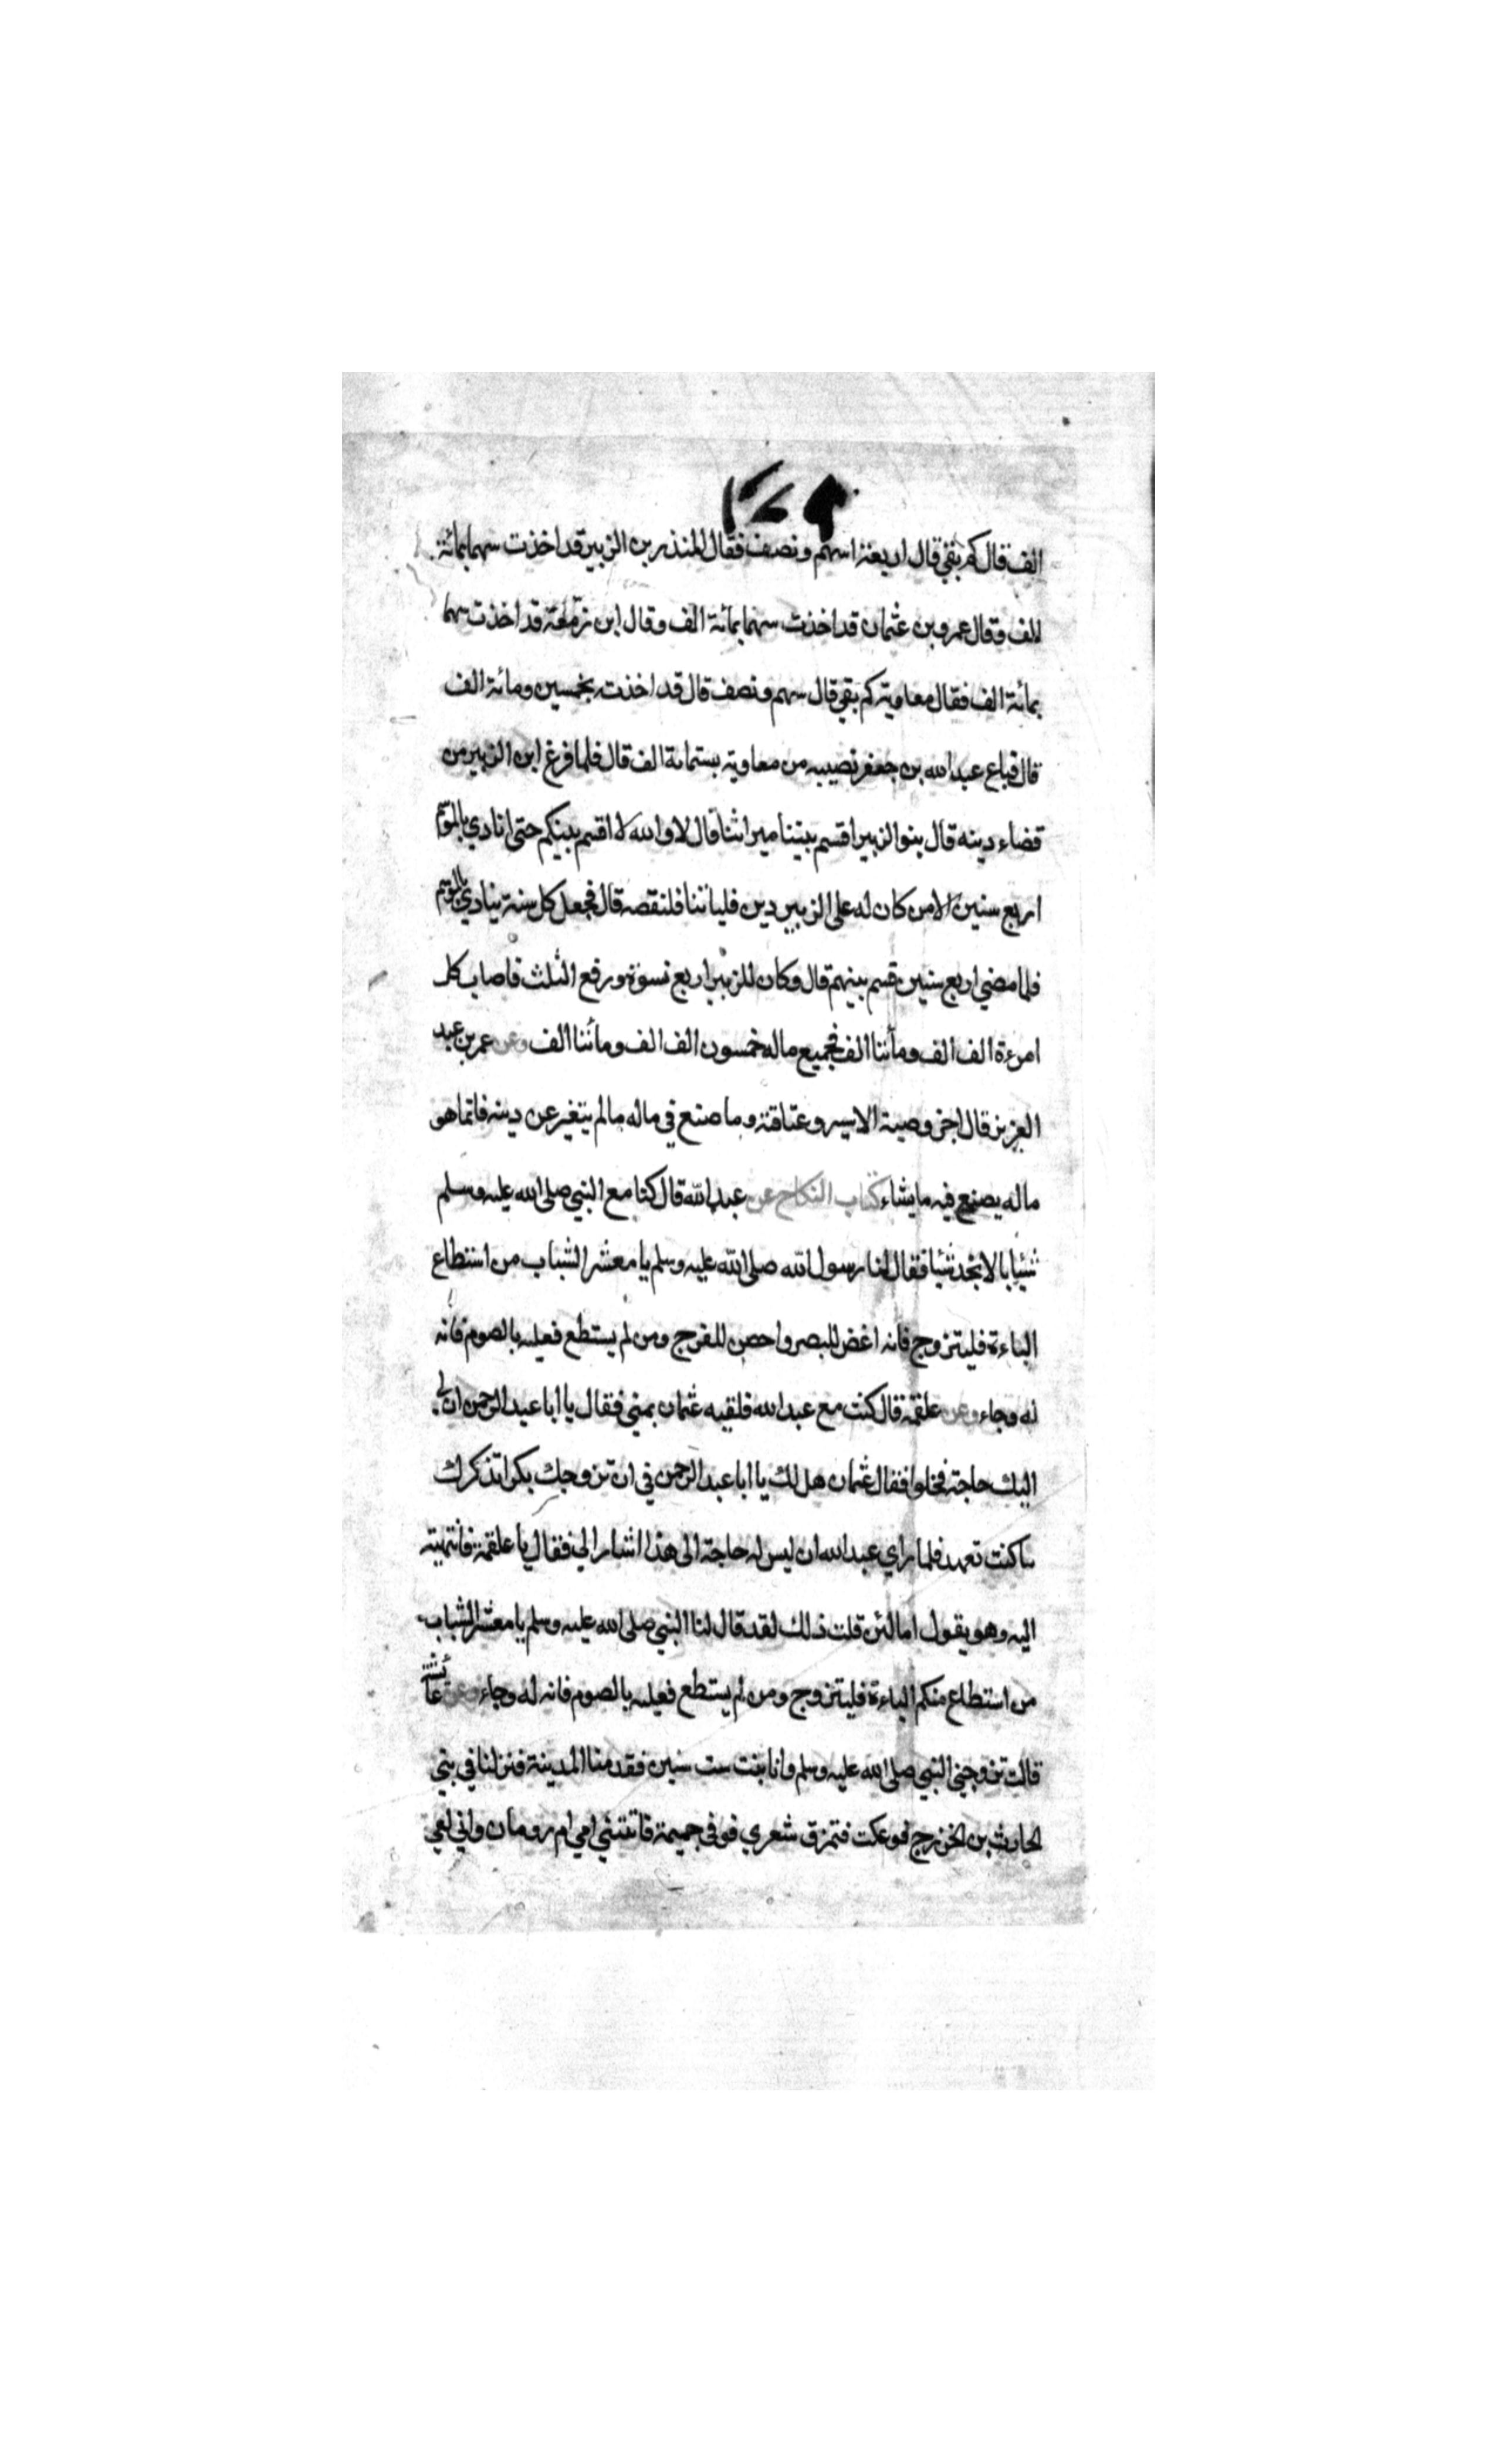 الف قال كم بقي قال اربعة اسهم ونصف فقال المنذر بن الزبير قد اخذت سهما بمائة
الف وقال عمرو بن عثمان قد اخذت سهما بمائة الف وقال ابن زمعة قد اخذت سهما
بمائة الف فقال معاوية كم بقي قال سهم ونصف قال قد اخذته بخمسين ومائة الف
قال فباع عبد الله بن جعفر نصيبه من معاوية بستمائة الف قال فلما فرغ ابن الزبير من
قضاء دينه قال بنو الزبير اقسم بيننا ميراثنا قال لا والله لا اقسم بينكم حتى انادي بالموسم
اربع سنين الا من كان له على الزبير دين فلياتنا فلنقضه قال فجعل كل سنة ينادي بالموسم
فلما مضي اربع سنين قسم بينهم قال وكان للزبير اربع نسوة ورفع الثلث فاصاب كل
امرءة الف الف ومأتنا الف فجميع ماله خمسون الف الف ومأتنا الف وعن عمر بن عبد
العزيز قال اجز وصية الاسير وعتاقته وما صنع في ماله مالم يتغير عن دينه فانما هو
ماله يصنع فيه ما يشاء كتاب النكاح عن عبد الله قال كنا مع النبي صلى الله عليه وسلم
شبابا لا نجد شيئا فقال لنا رسول الله صلى الله عليه وسلم يا معشر الشباب من استطاع
الباءة فليتزوج فانه اغض للبصر واحصن للفرج ومن لم يستطع فعليه بالصوم فانه
له وجاء وعن علقمة قال كنت مع عبد الله فلقيه عثمان بمني فقال يا ابا عبد الرحمن ان لي
اليك حاجة فخلوا فقال عثمان هل لك يا ابا عبد الرحمن في ان تزوجك بكرا تذكرك
ما كنت تعهد فلما راي عبد الله ان ليس له حاجة الى هذا اشار الي فقال يا علقمة فانتهيت
اليه وهو يقول اما لئن قلت ذلك لقد قال لنا النبي صلى الله عليه وسلم يا معشر الشباب
من استطاع منكم الباءة فليتزوج ومن لم يستطع فعليه بالصوم فانه له وجاء وعن عائشة
قالت تزوجني النبي صلى الله عليه وسلم وانا بنت ست سنين فقدمنا المدينة فنزلنا في بني
الحارث بن الخزرج فوعكت فتمزق شعري فوفى جميمة فاتتني امي ام رومان واني لفي